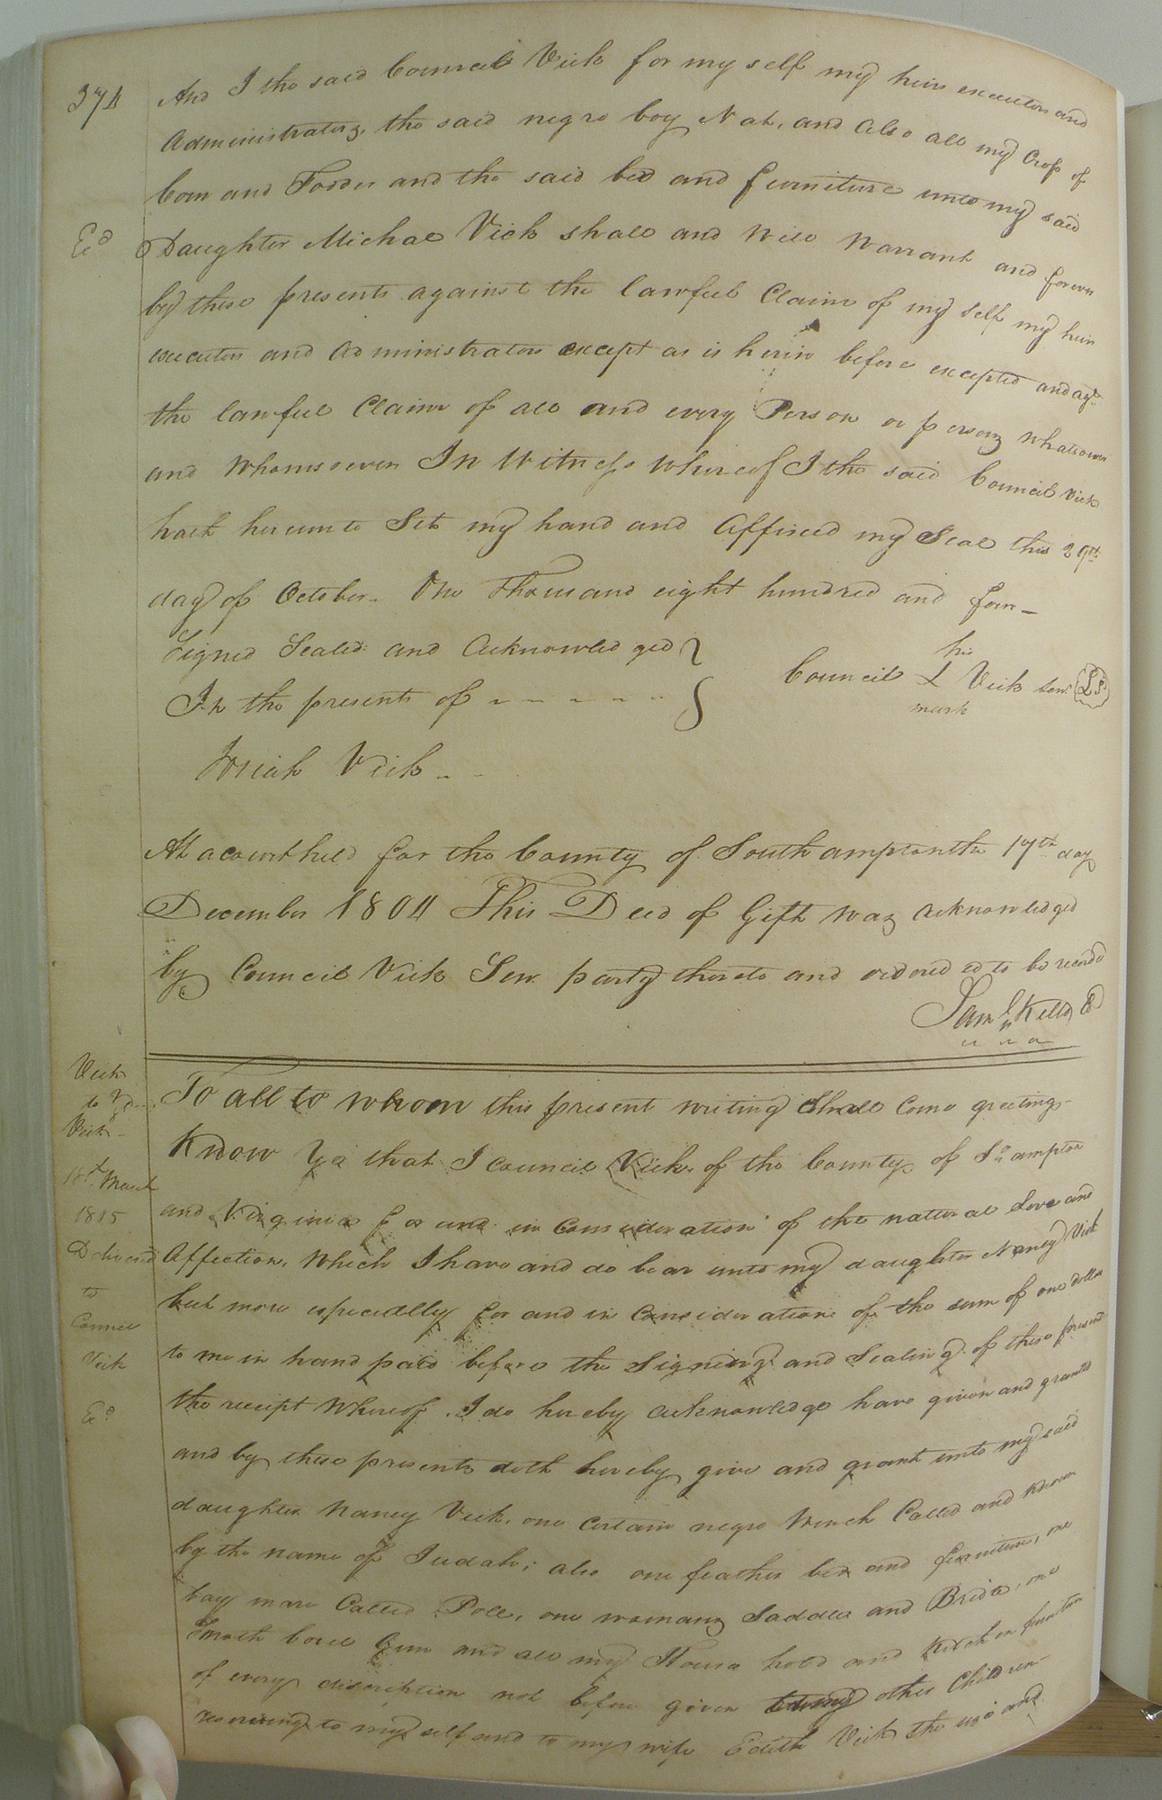 374
And I the said Council Vick for my self my heirs executors and
Administrators the said negro boy Nat, and also all my Crop of
Corn and Fodder and the said bed and furniture unto my said
Exd
Daughter Michal Vick shall and will Warrant and forever
by these presents against the lawful Claim of my self my heirs
executors and administrators except as is herein before excepted and agt
the lawful Claim of all and every Person or persons whatsoever
and Whomsoever In Witness Whereof I the said Council Vick
hath hereunto Set my hand and Affixed my Seal this 29th
day of October One Thousand eight hundred and four
Signed Sealed and Acknowledged
In the presents of
his
Council Vick Senr LS
mark
Josiah Vick
At a court held for the County of Southampton the 17th day
December 1804 This Deed of Gift was acknowledged
by Council Vick Sen party thereto and ordered to be recorded
Saml Kello
Vick
to
Vick
To all to whom this present writing Shall Come greeting
Know Ye that I council Vick of the County of So ampton
March
1815
Delivered
to
Council
Vick
Exd
and Virginia for and in consideration of the natural Love and
Affection, Which I have and do bear unto my daughter Nancy Vick
but more especially for and in Consideration of the sum of one dollar
to me in hand paid before the Signing and Sealing of these present
the receipt Whereof I do hereby acknowledge have given and granted
and by these presents doth hereby give and grant unto my said
daughter Nancy Vick, one certain negro Wench Called and known
by the name of Judah; also one feather bed and furniture, one
bay mare Called Poll, one womans Saddle and Bridle, one
Smooth bored Gun and all my House hold and Kitchen
of every discription not before given to my other Children
reserving to my self and to my wife Edith Vick the use and